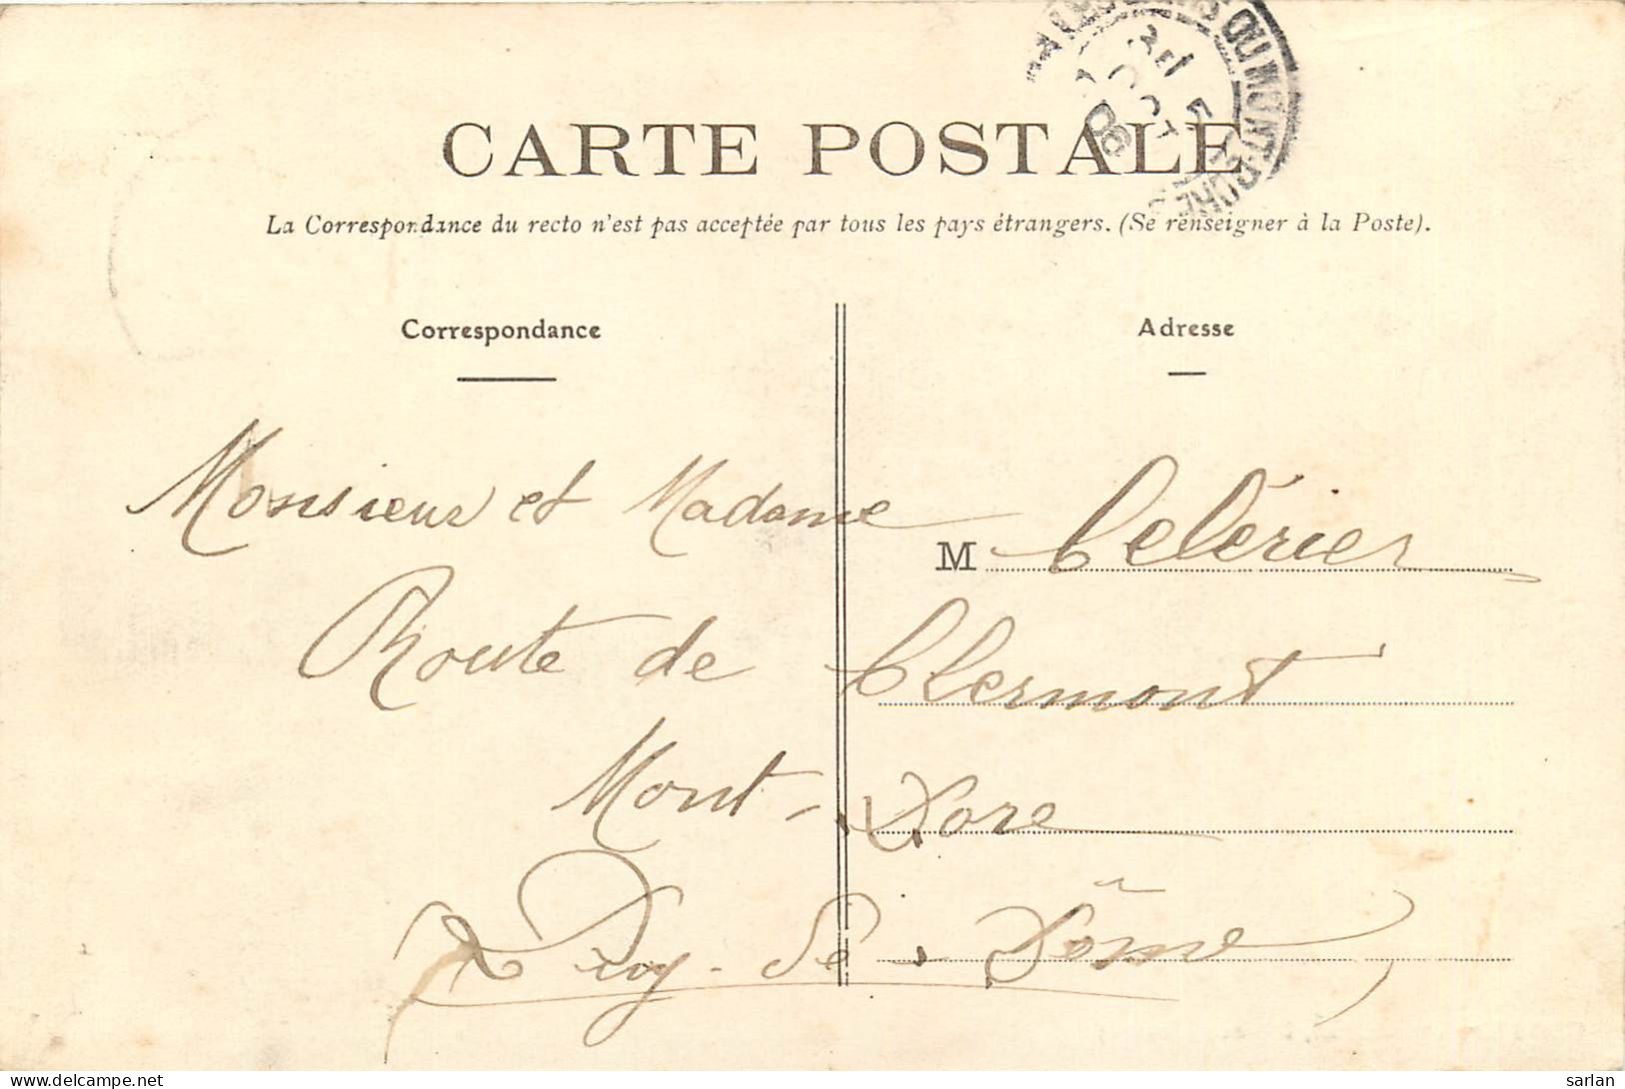 CARTE POSTALE
La Correspondance du recto n'est pas acceptée par tous les pays étrangers. (Se renseigner à la Poste).
Correspondance
Adresse
Monsieur et Madame
M Celérier
Route de Clermont
Mont-Dore
Puy-de-Dôme
OCT
08
DU MONT-DORE
delcampe.net
sarlan